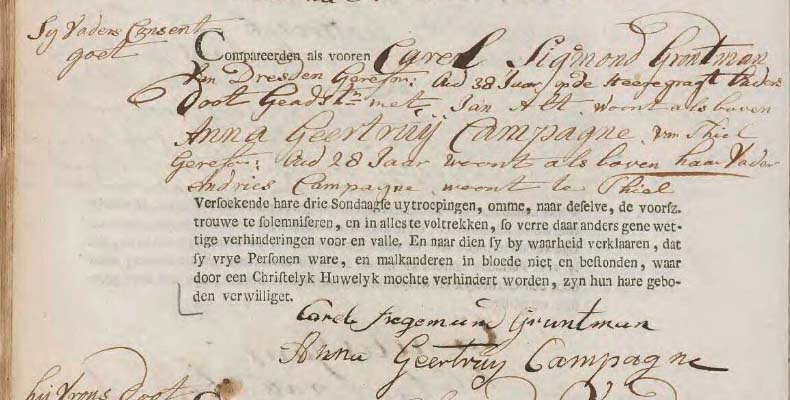 Sy Vaders Consent
goet
Compareerden als vooren Carel Sigmond Gruntman
Van Dresden Gerefm: Oud 38 Jaar op de Heeregragt Vaders
Doot Geadst.n met Jan Alt woont als boven
Anna Geertruij Campagne van Thiel
Gerefm: Oud 28 Jaar woont als boven haar Vader
Andries Campagne woont te Thiel
Versoekende hare drie Sondaagse uytroepingen, omme, naar deselve, de voorsz.
trouwe te solemniseren, en in alles te voltrekken, so verre daar anders gene wet-
tige verhinderingen voor en valle. En naar dien sy by waarheid verklaaren, dat
sy vrye Personen ware, en malkanderen in bloede niet en bestonden, waar
door een Christelyk Huwelyk mochte verhindert worden, zyn hun hare gebo-
den verwilliget.
Carel Gruntman
Anna Geertruy Campagne
hy Vrous doot